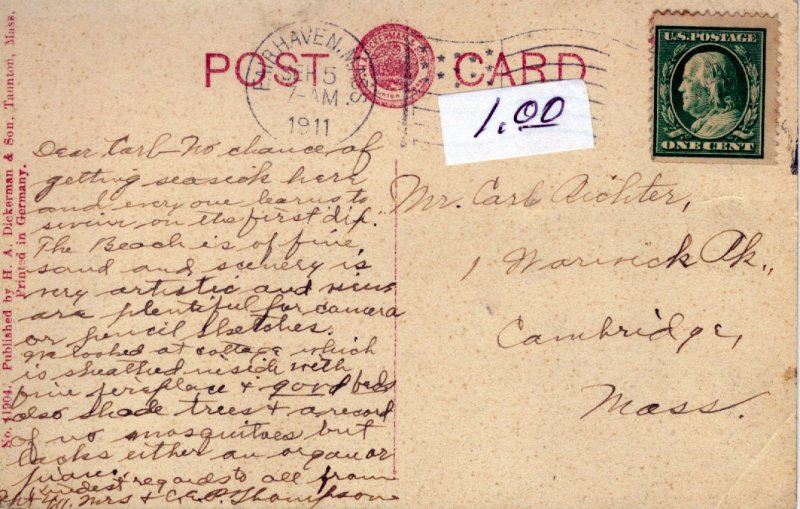 POST CARD
H.A. DICKERMAN & SON
FAIRHAVEN, MASS.
SEP 5
7-AM
1911
1.00
U.S. POSTAGE
ONE CENT
No. 11904. Published by H. A. Dickerman & Son, Taunton, Mass.
Printed in Germany.
Dear Carl- No chance of
getting seasick here
and everyone learns to
swim on the first dip.
The Beach is of fine
sand and scenery is
very artistic and views
are plentiful for camera
or pencil sketches.
We looked at cottage which
is sheathed inside with
fine fireplace & good beds
also shade trees & a record
of no mosquitoes but
lacks either an organ or
piano.
Kindest regards to all from
Mr. Mrs & C.E.P. Thompson
Mr. Carl Richter,
1 Warwick Pk.,
Cambridge,
Mass.